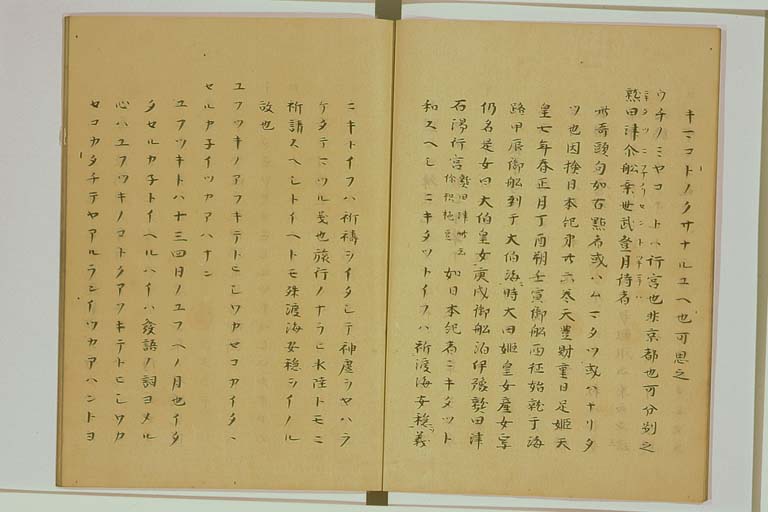 キミコトノクサナルユヘ也可思之
ウチノミヤコ トハ行宮也非京都也可分別之
熟田津尒船乗世武登月待者
此哥頭句如古點者或ハムマタツ或ハナリタ
ツ也因検日本紀第廿六巻天豊財重日足姫天
皇七年春正月丁酉朔壬寅御船西征始就于海
路甲辰御船到于大伯海時大田姫皇女産女霊
仍名是女曰大伯皇女庚戌御船泊伊豫熟田津
石湯行宮 如日本紀者ニキタツト
和スヘシ ニキタツトイフハ祈渡海安穏義
ニキトイフハ祈禱ヲイタシテ神慮ヲヤハラ
ケタテマツル義也旅行ノナラヒ水陸トモニ
祈請スヘシトイヘトモ殊渡海安穏ヲイノル
故也
ユフツキノアフキテトヒシワカセコカイタヽ
セルカ子イツカアハナン
ユフツキトハ十三四日ノユフヘノ月也イタ
タセルカ子トイヘルハイハ發語ノ詞ヨメル
心ハユフツキノコトクアフキテトヒシワカ
セコカタチテヤアルランイツカアハントヨ